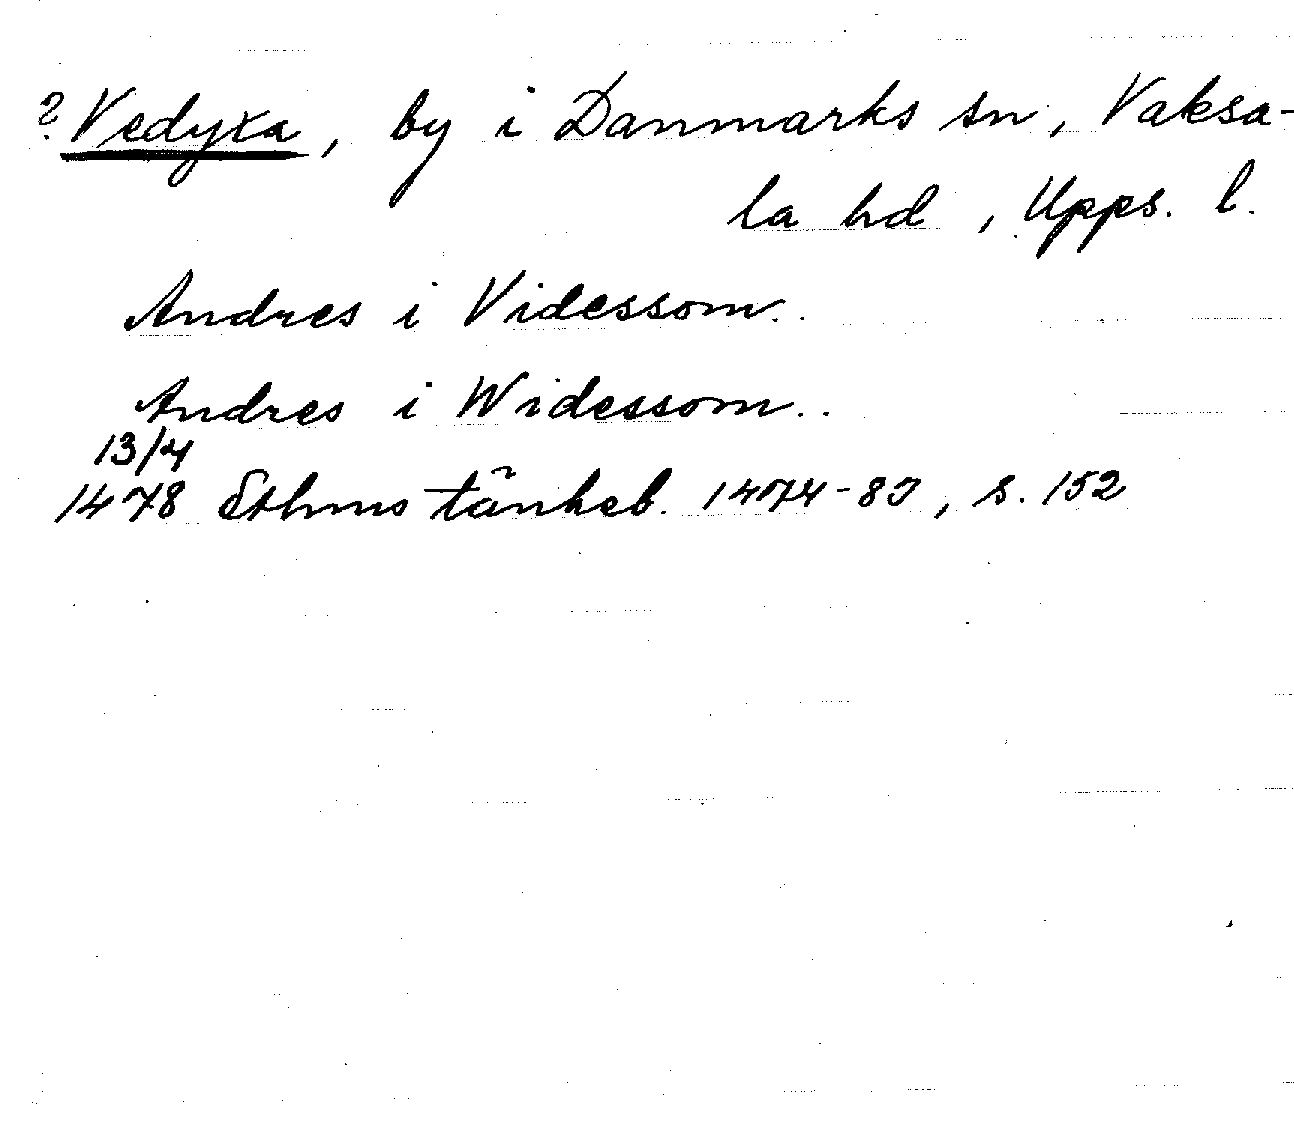 ? Vedyxa, by i Danmarks sn, Vaksa-
la hd, Upps. l.
Andres i Videssom..
Andres i Widessom..
13/4
1478 Sthms tänkeb. 1474-83, s. 152